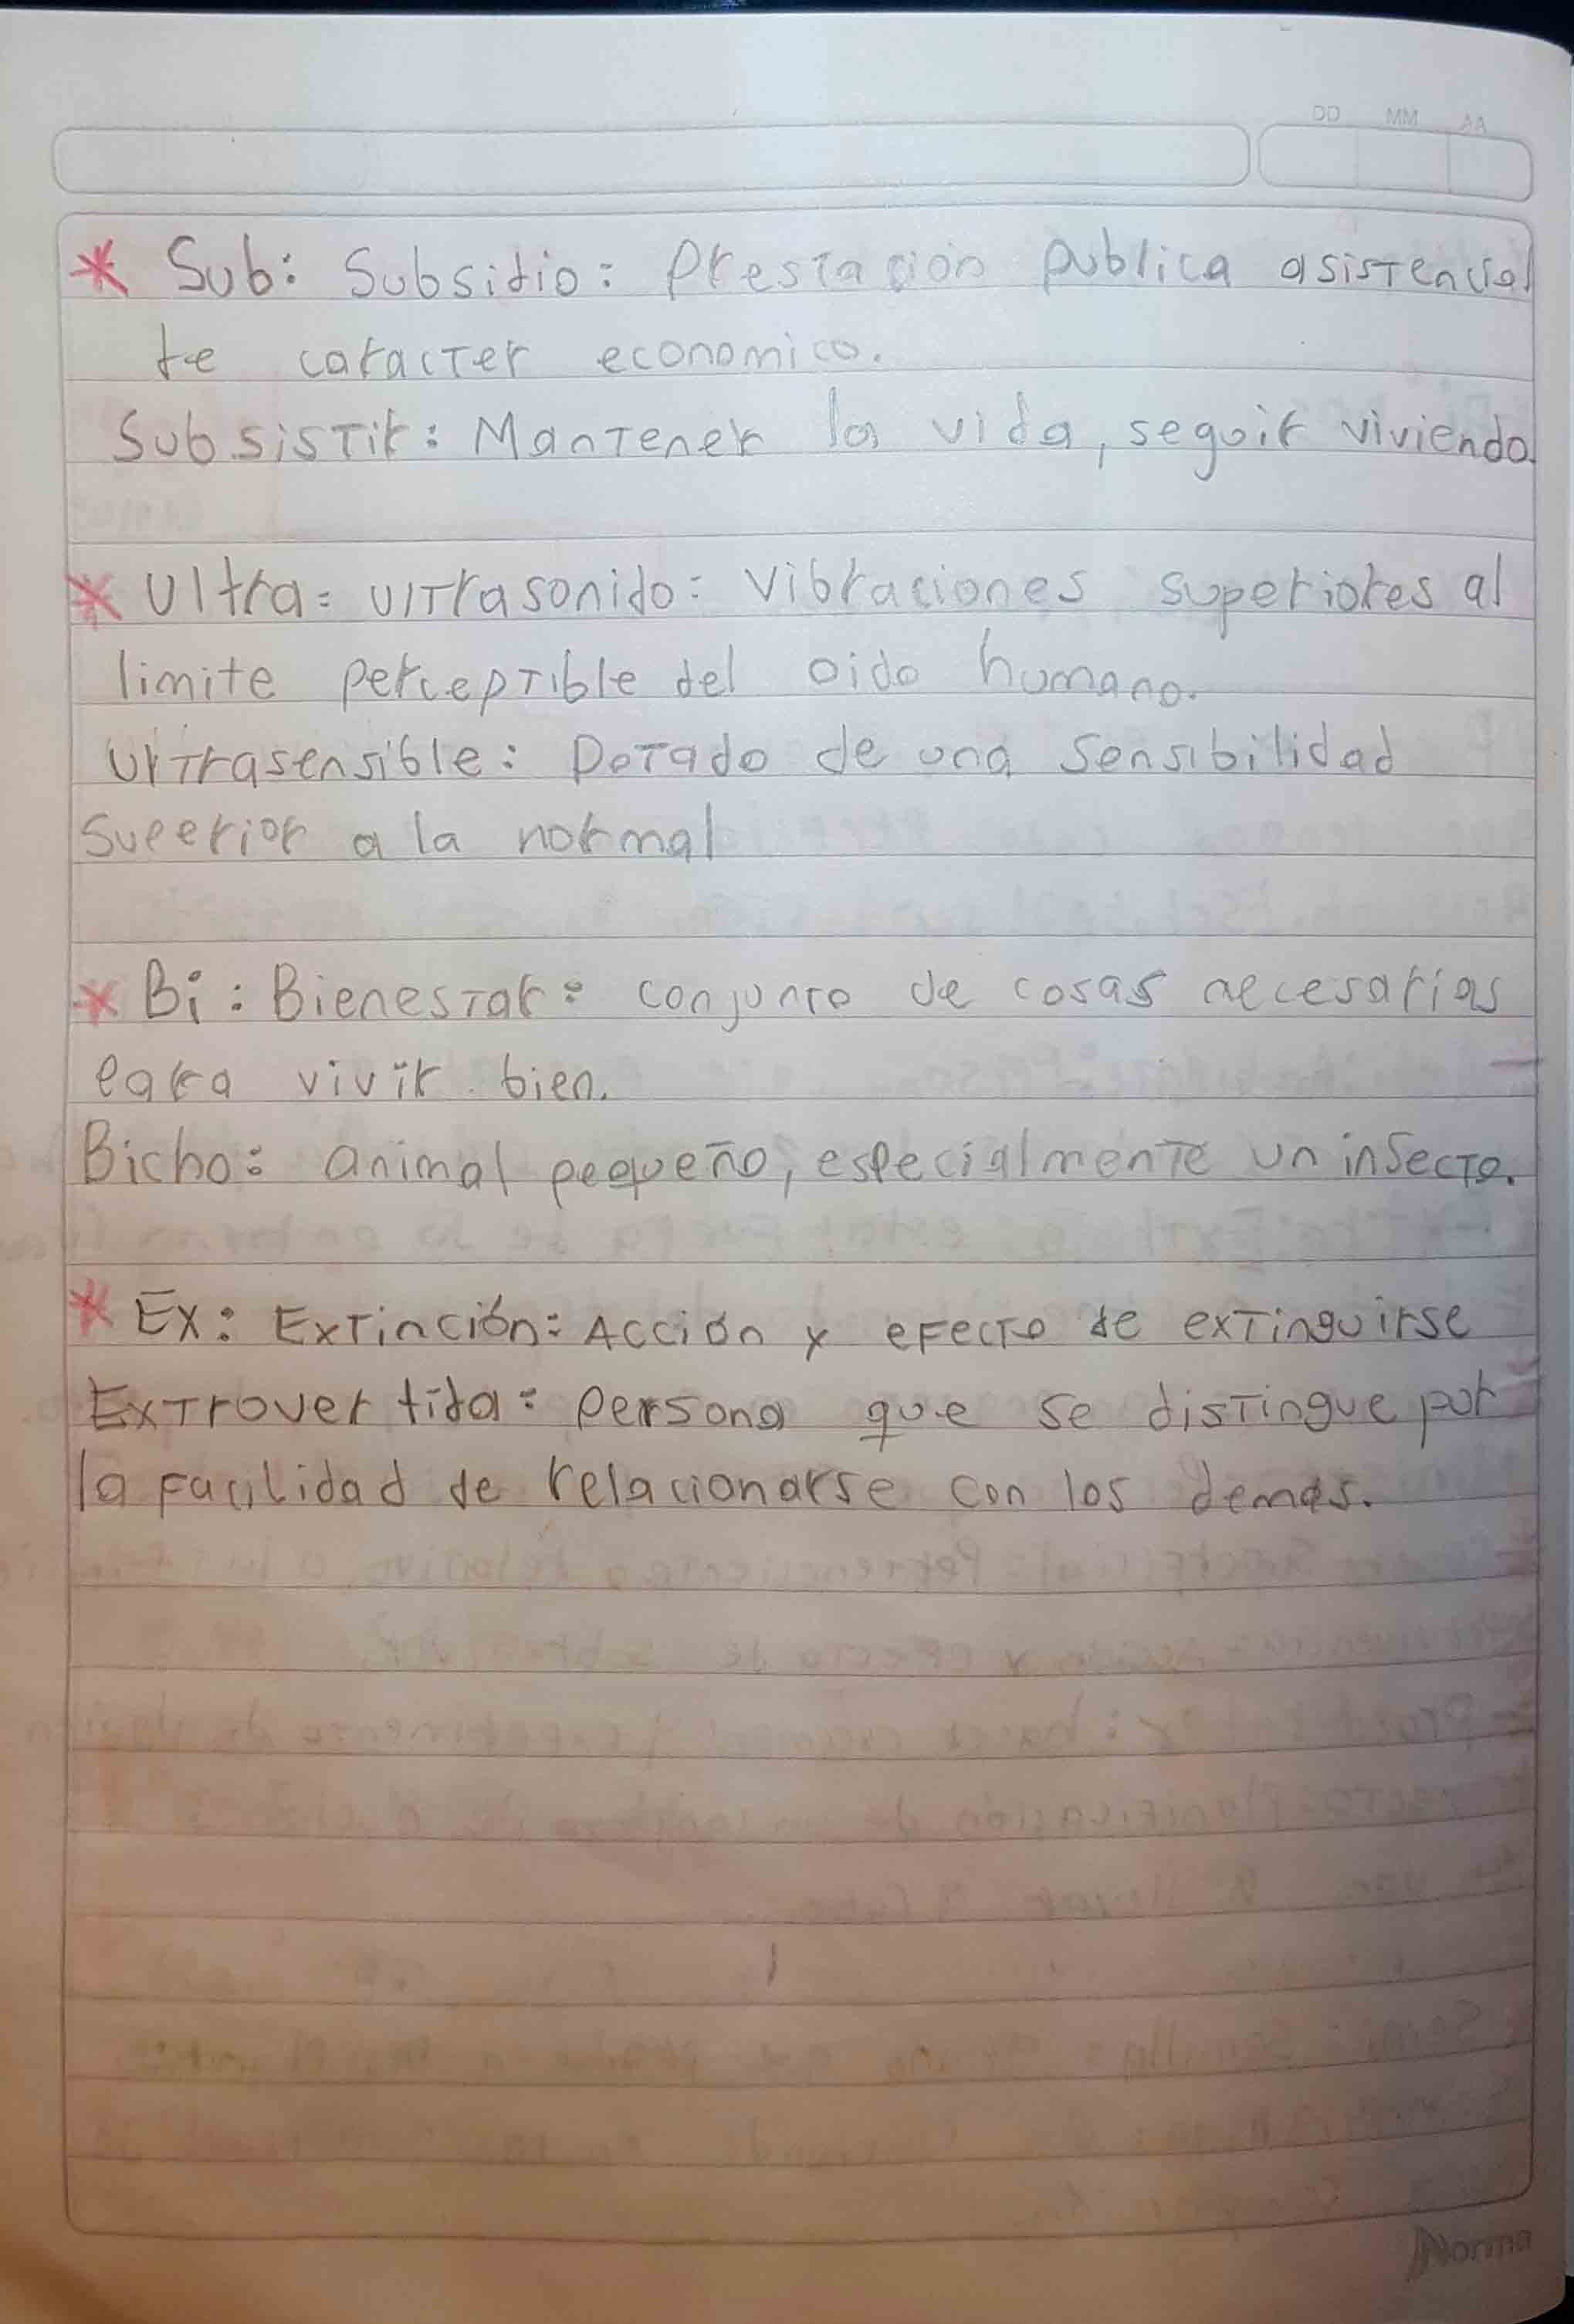 DD MM AA
* Sub: Subsidio: Prestación publica asistencial
de caracter economico.
Subsistir: Mantener la vida, seguir viviendo.
* Ultra: Ultrasonido: Vibraciones superiores al
limite perceptible del oido humano.
Ultrasensible: Dotado de una sensibilidad
superior a la normal
* Bi: Bienestar: conjunto de cosas necesarias
para vivir bien.
Bicho: animal pequeño, especialmente un insecto.
* Ex: Extinción: Acción y efecto de extinguirse
Extrovertida: persona que se distingue por
la facilidad de relacionarse con los demas.
Norma